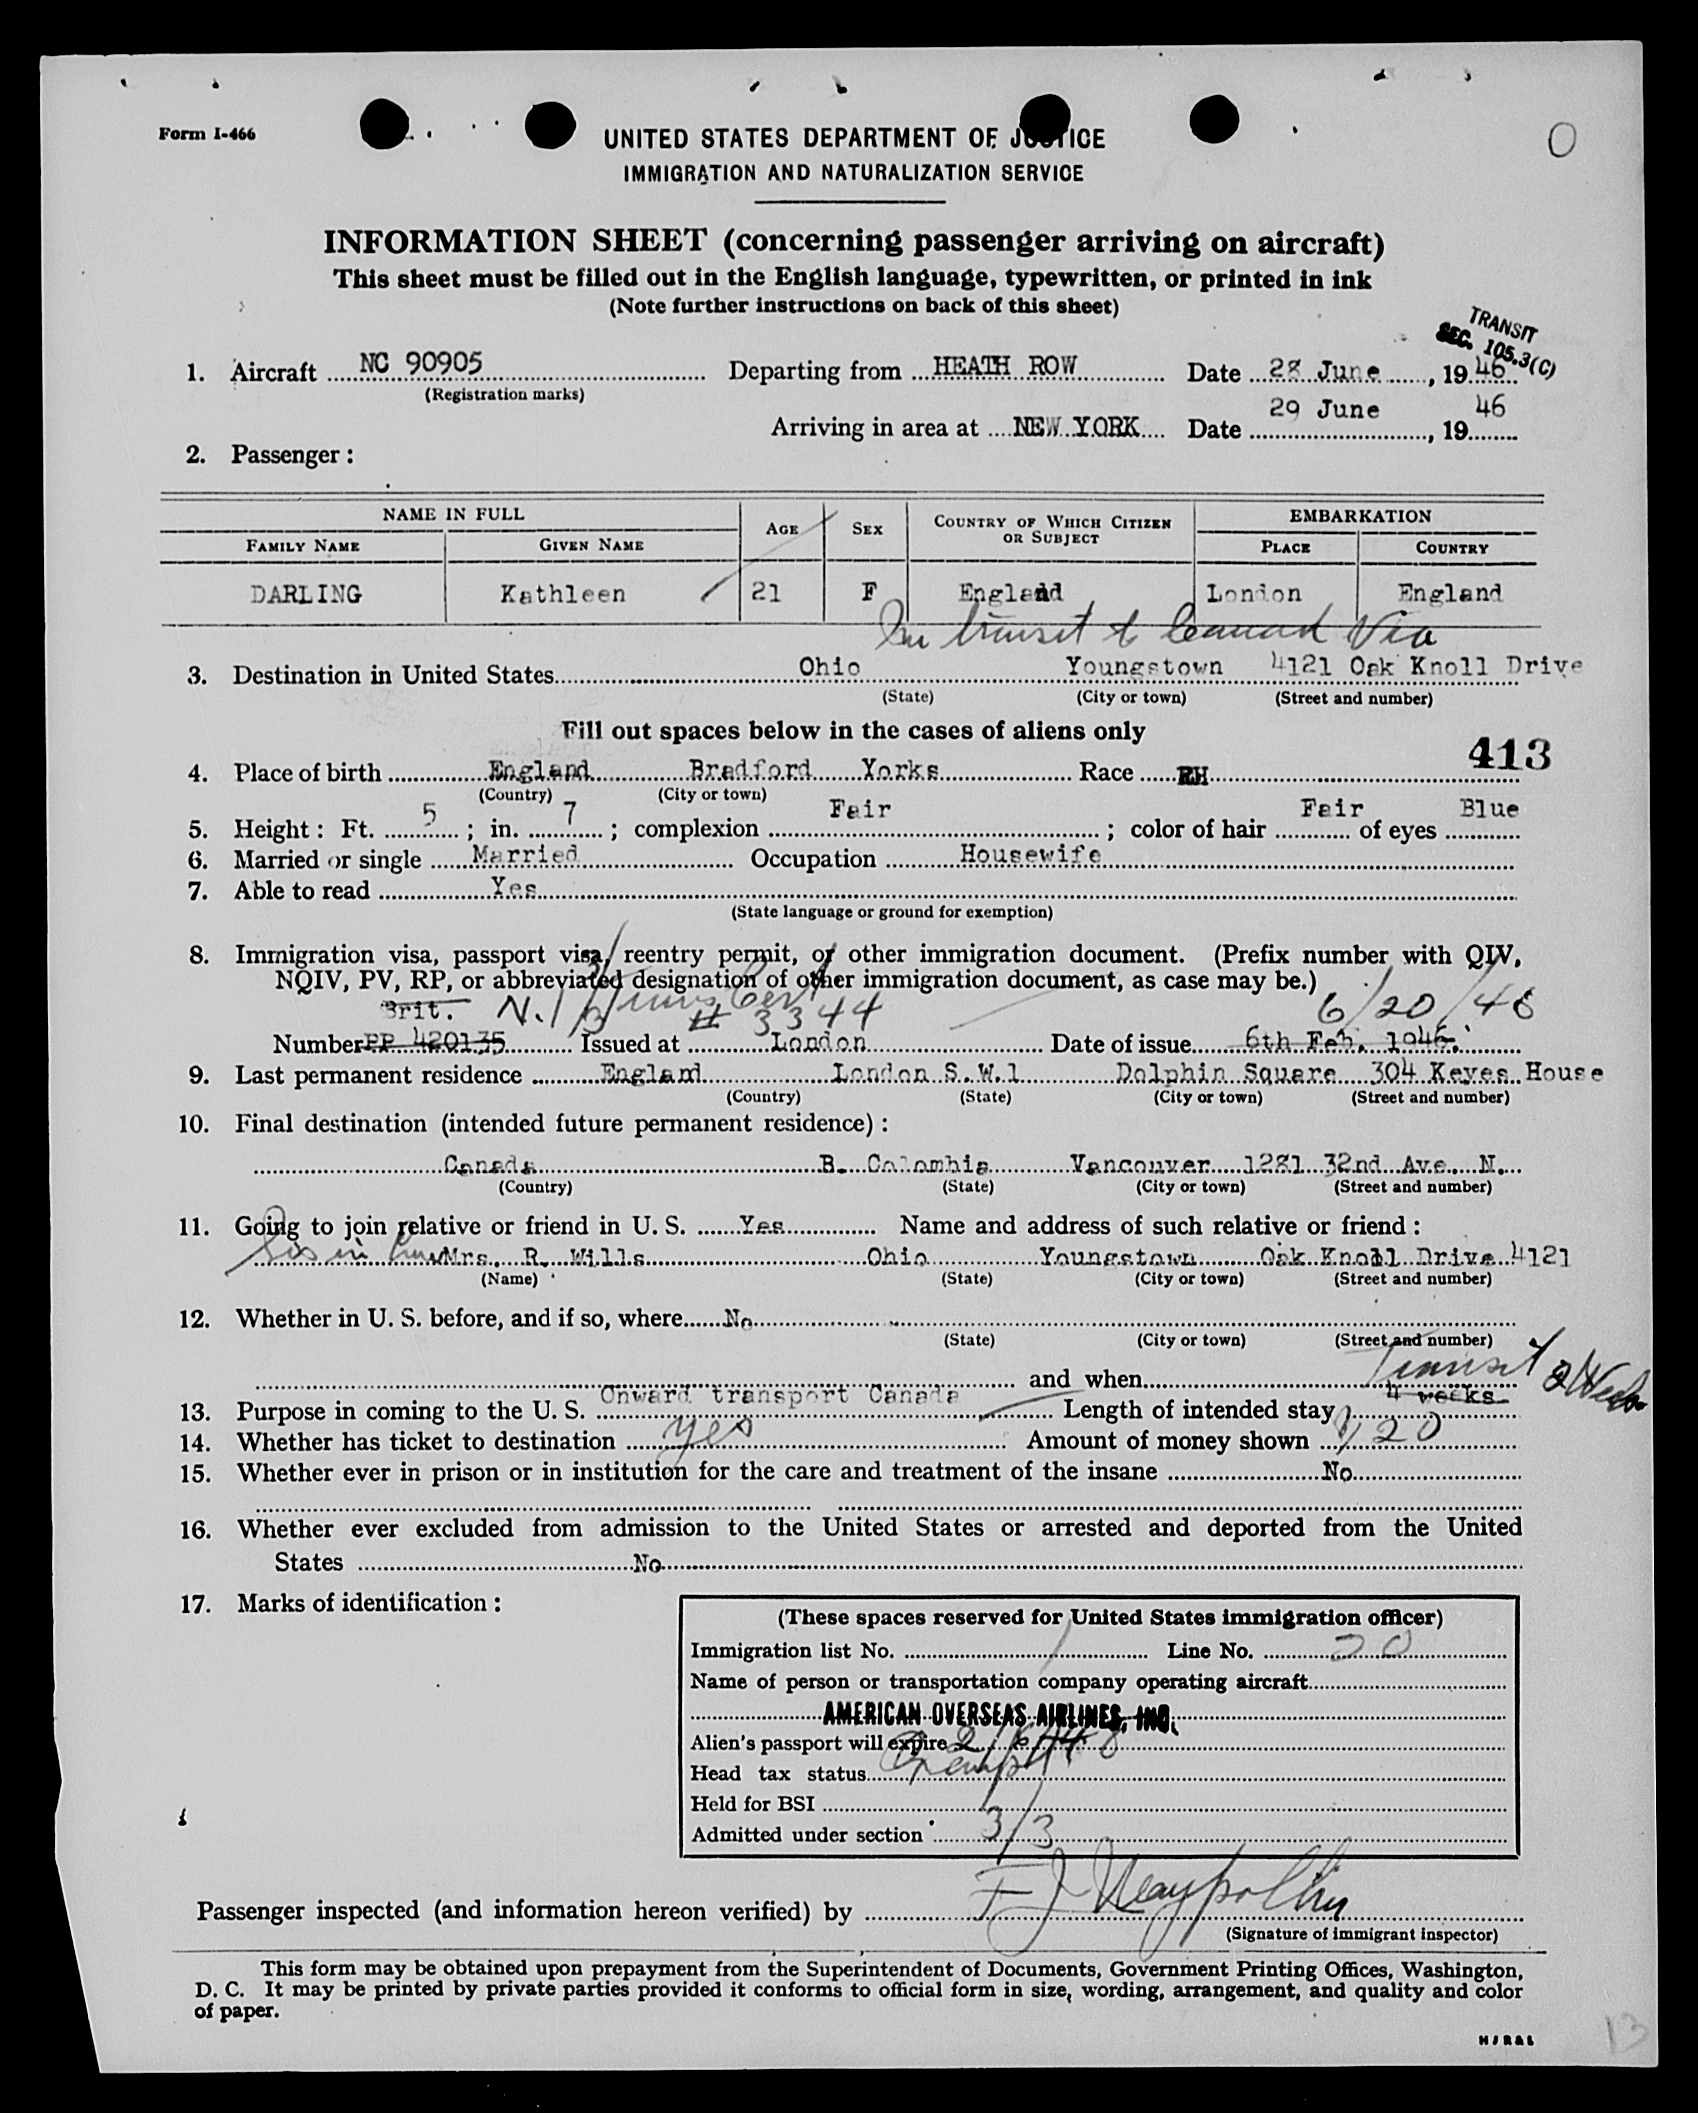 Form I-466
UNITED STATES DEPARTMENT OF JUSTICE
IMMIGRATION AND NATURALIZATION SERVICE
INFORMATION SHEET (concerning passenger arriving on aircraft)
This sheet must be filled out in the English language, typewritten, or printed in ink
(Note further instructions on back of this sheet)
TRANSIT
SEC. 105.3(C)
1. Aircraft NC 90905 Departing from HEATH ROW Date 28 June, 1946
(Registration marks)
Arriving in area at NEW YORK Date 29 June, 19 46
2. Passenger:
NAME IN FULL AGE SEX COUNTRY OF WHICH CITIZEN OR SUBJECT EMBARKATION
FAMILY NAME GIVEN NAME PLACE COUNTRY
DARLING Kathleen 21 F England London England
In transit to Canada Via
3. Destination in United States Ohio Youngstown 4121 Oak Knoll Drive
(State) (City or town) (Street and number)
Fill out spaces below in the cases of aliens only
413
4. Place of birth England Bradford Yorks Race
(Country) (City or town)
5. Height: Ft. 5; in. 7; complexion Fair; color of hair Fair of eyes Blue
6. Married or single Married Occupation Housewife
7. Able to read Yes
(State language or ground for exemption)
8. Immigration visa, passport visa, reentry permit, or other immigration document. (Prefix number with QIV,
NQIV, PV, RP, or abbreviated designation of other immigration document, as case may be.)
Brit. # 3344 6/20/46
Number PP 420135 Issued at London Date of issue 6th Feb. 1946.
9. Last permanent residence England London S.W.1 Dolphin Square 304 Keyes House
(Country) (State) (City or town) (Street and number)
10. Final destination (intended future permanent residence):
Canada B. Colombia Vancouver 1281 32nd Ave. N.
(Country) (State) (City or town) (Street and number)
11. Going to join relative or friend in U. S. Yes Name and address of such relative or friend:
Sis in law Mrs. R. Wills Ohio Youngstown Oak Knoll Drive 4121
(Name) (State) (City or town) (Street and number)
12. Whether in U. S. before, and if so, where No
(State) (City or town) (Street and number)
and when Transit 2 Weeks
13. Purpose in coming to the U. S. Onward transport Canada Length of intended stay 4 weeks
14. Whether has ticket to destination yes Amount of money shown 120
15. Whether ever in prison or in institution for the care and treatment of the insane No
16. Whether ever excluded from admission to the United States or arrested and deported from the United
States No
17. Marks of identification:
(These spaces reserved for United States immigration officer)
Immigration list No. 1 Line No. 20
Name of person or transportation company operating aircraft
AMERICAN OVERSEAS AIRLINES, INC.
Alien's passport will expire
Head tax status Exempt
Held for BSI
Admitted under section 3/3
Passenger inspected (and information hereon verified) by
(Signature of immigrant inspector)
This form may be obtained upon prepayment from the Superintendent of Documents, Government Printing Offices, Washington,
D. C. It may be printed by private parties provided it conforms to official form in size, wording, arrangement, and quality and color
of paper.
13